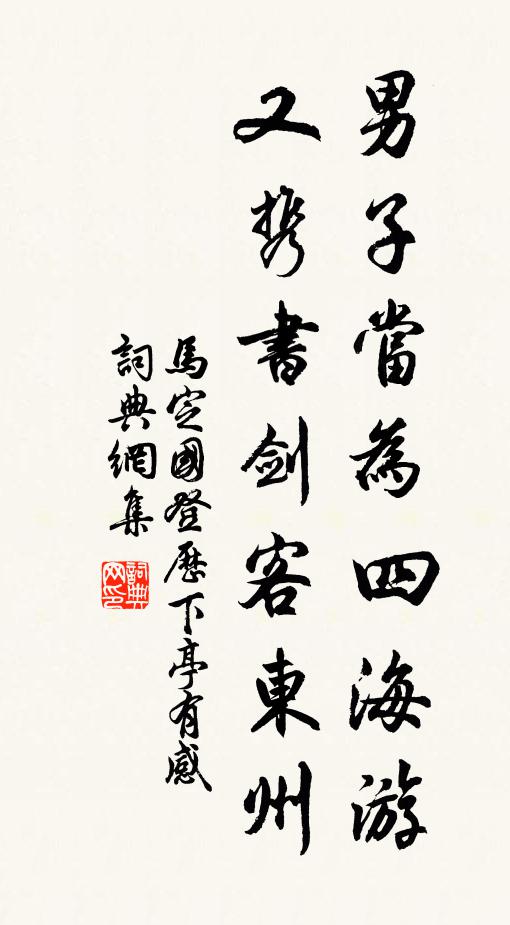 男子當為四海游
又携書劍客東州
馬定國登歷下亭有感
詞典網集
詞典网印